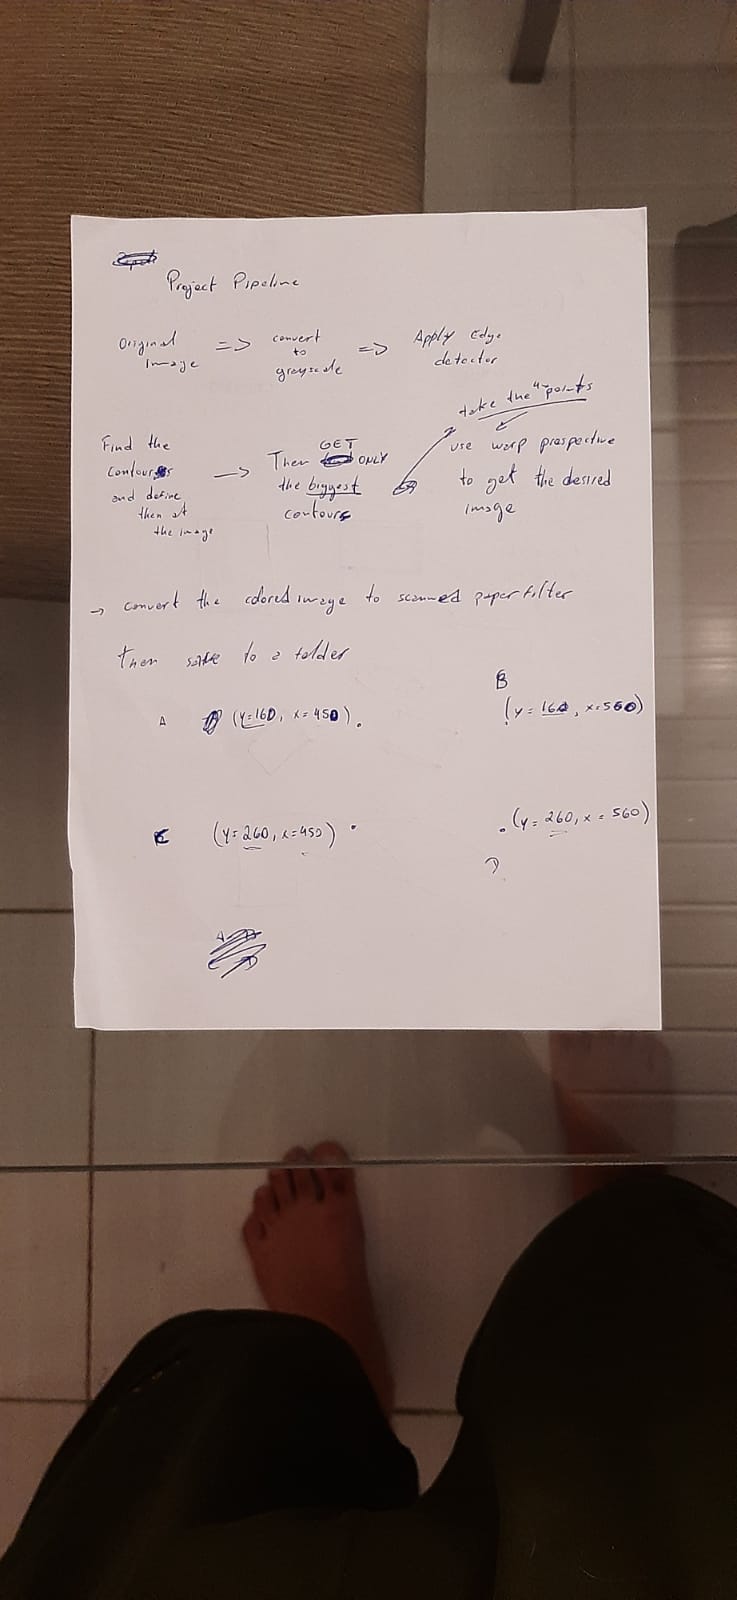 Project Pipeline
Original image => convert to grayscale => Apply Edge detector
Find the contours and define then at the image -> Then GET ONLY the biggest contours
take the "4" points
use warp prespective to get the desired image
-> convert the colored image to scanned paper filter
then save to a folder
A (y=160, x=450).
B
(y=160, x=560)
C (y=260, x=450) .
. (y=260, x=560)
D